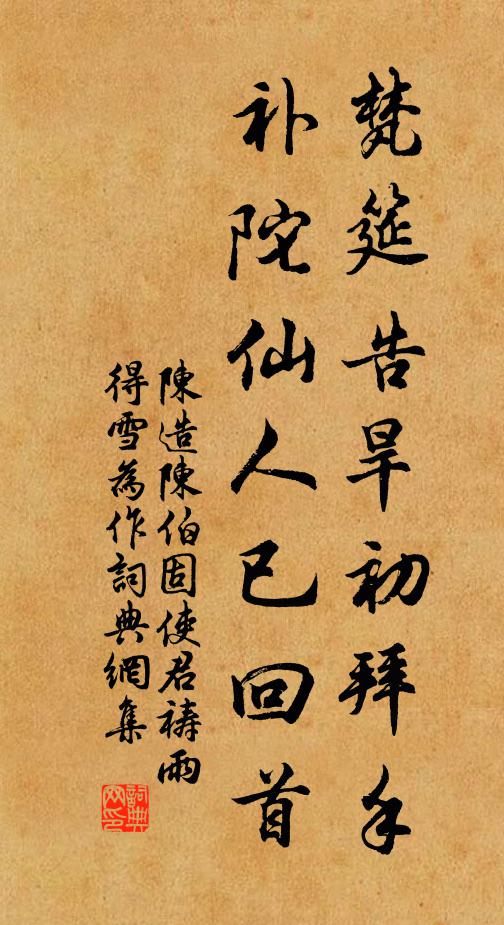 梵筵告旱初拜手
补陀仙人已回首
陳造陳伯固使君禱雨
得雪為作詞典網集
詞典网印